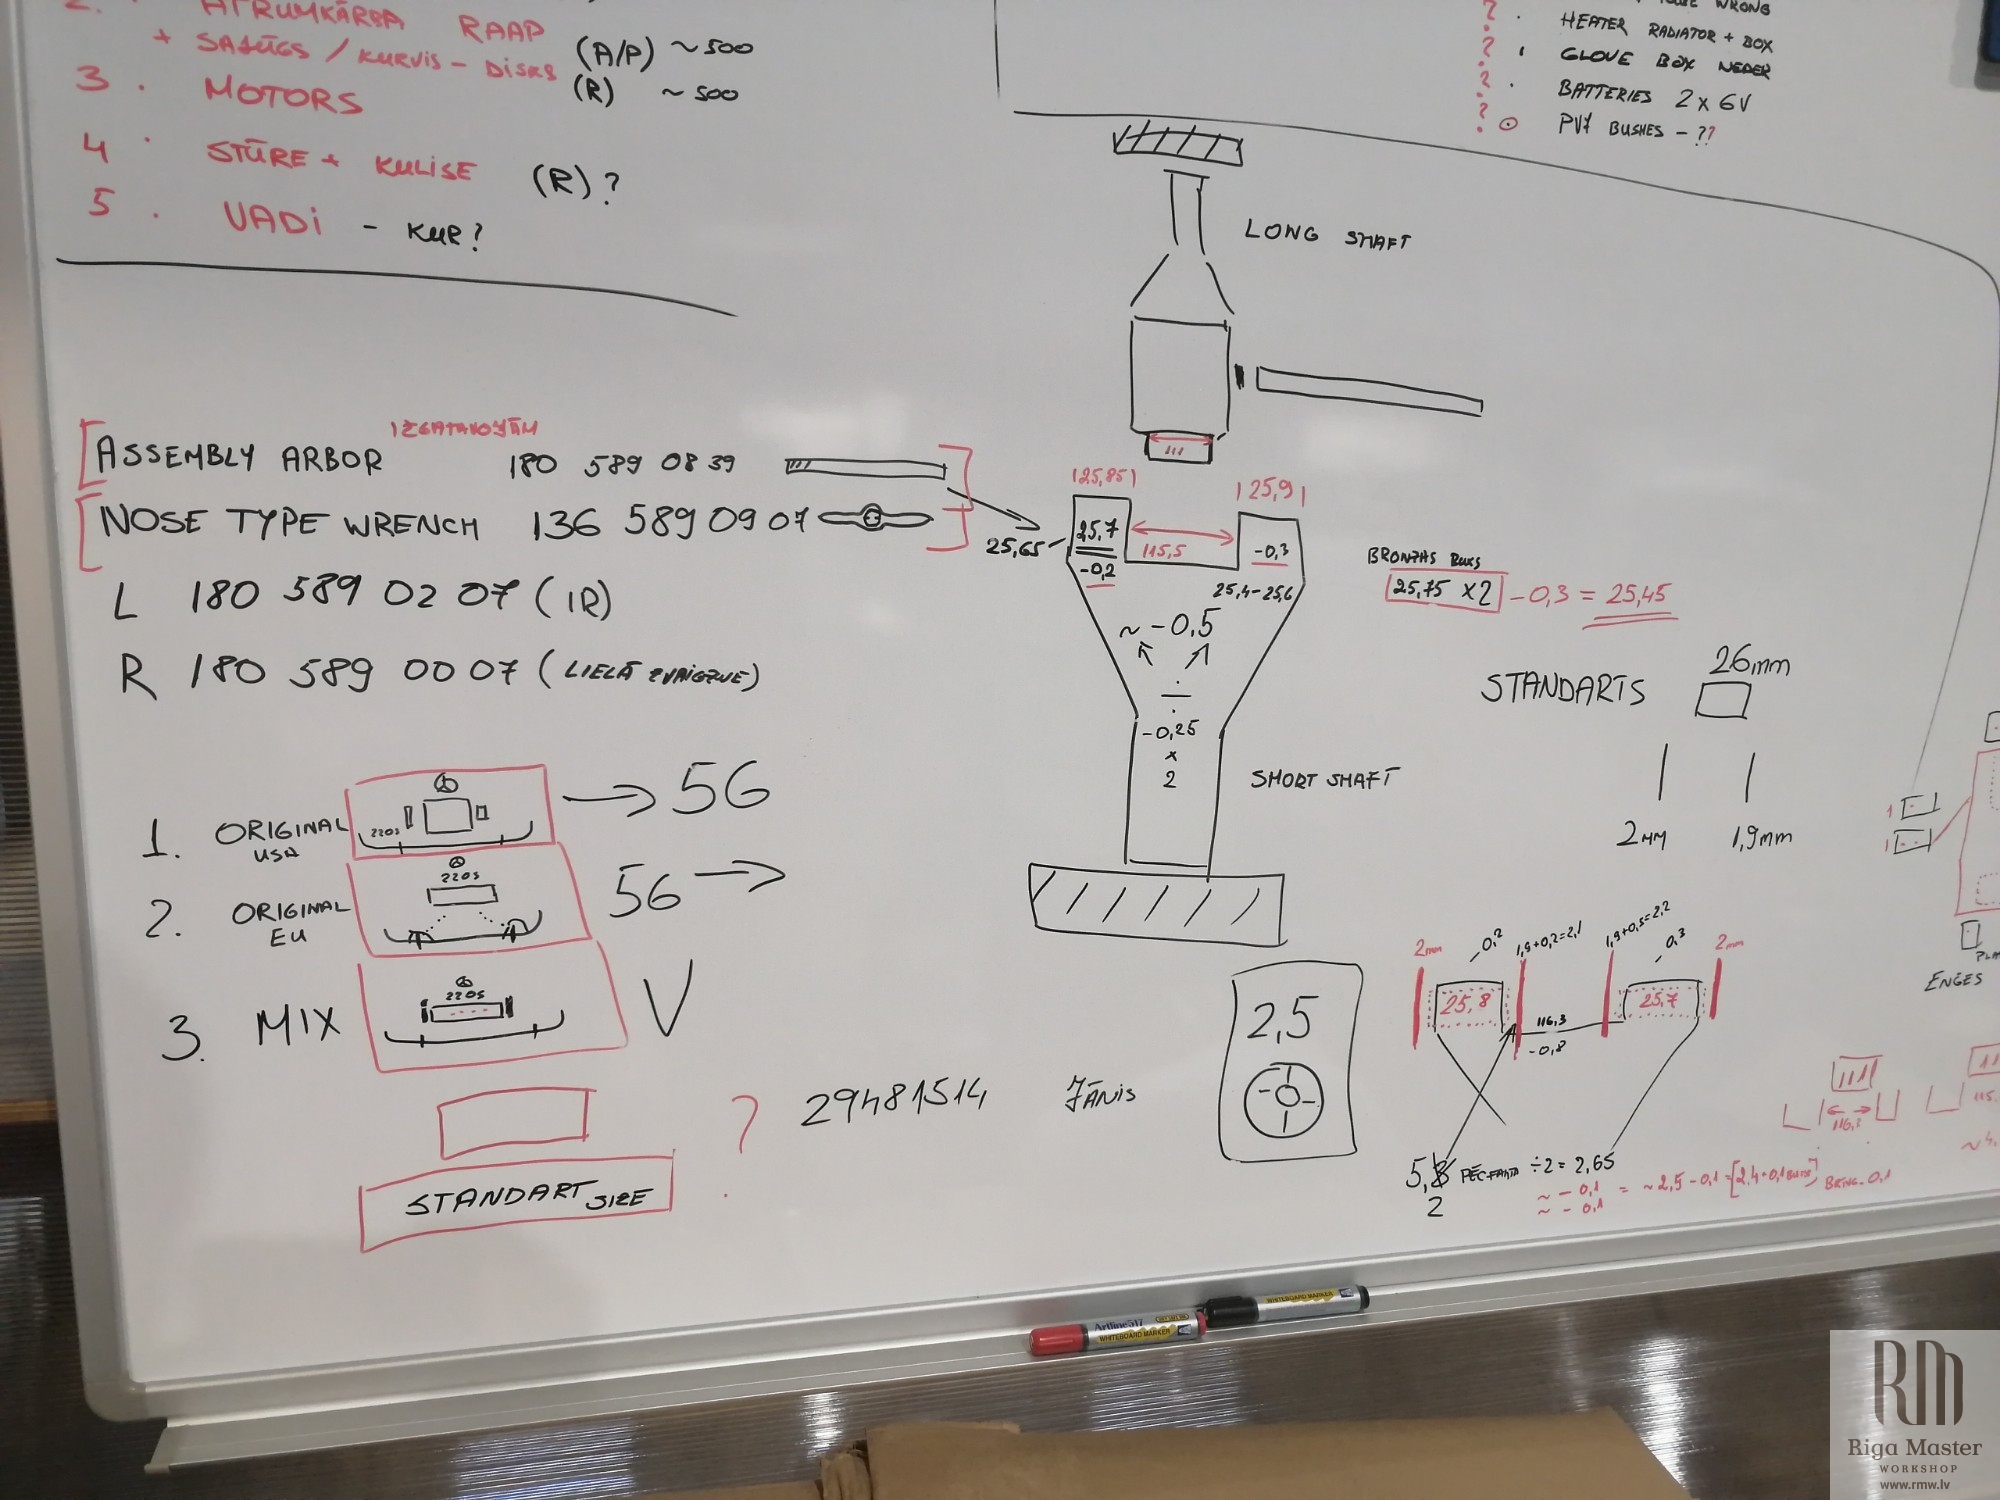 2. ĀTRUMKĀRBA RAAP
+ SAJŪGS / KURVIS - DISKS (A/P) ~500
3. MOTORS (R) ~500
4. STŪRE + KULISE (R)?
5. VADI - KUR?
WRONG
? · HEATER RADIATOR + BOX
? · GLOVE BOX NEDER
? · BATTERIES 2 x 6V
? PV7 BUSHES - ??
LONG SHAFT
IZGATAVOJAM
ASSEMBLY ARBOR 180 589 08 39
NOSE TYPE WRENCH 136 589 09 07
L 180 589 02 07 (IR)
R 180 589 00 07 (LIELĀ ZVAIGZNE)
|25,85|
|25,9|
25,65
25,7
-0,2
115,5
-0,3
25,4-25,6
~ -0,5
-0,25
x
2
SHORT SHAFT
BRONZAS BUKS
25,75 x2 -0,3 = 25,45
STANDARTS 26mm
2mm 1,9mm
1. ORIGINAL USA 220S → 56
2. ORIGINAL EU 220S 56 →
3. MIX 220S V
STANDART SIZE
?
29481514 JĀNIS
2,5
2mm -0,2 1,9+0,2=2,1 1,9+0,3=2,2 -0,3 2mm
25,8 25,7
116,3
-0,8
5,3 PĒC FAKTA ÷2 = 2,65
2
~ -0,1 = ~2,5-0,1=[2,4+0,1
~ -0,1
116,3
115,
ENGES
Artline 517
WHITEBOARD MARKER
WHITEBOARD MARKER
RM
Riga Master
WORKSHOP
www.rmw.lv